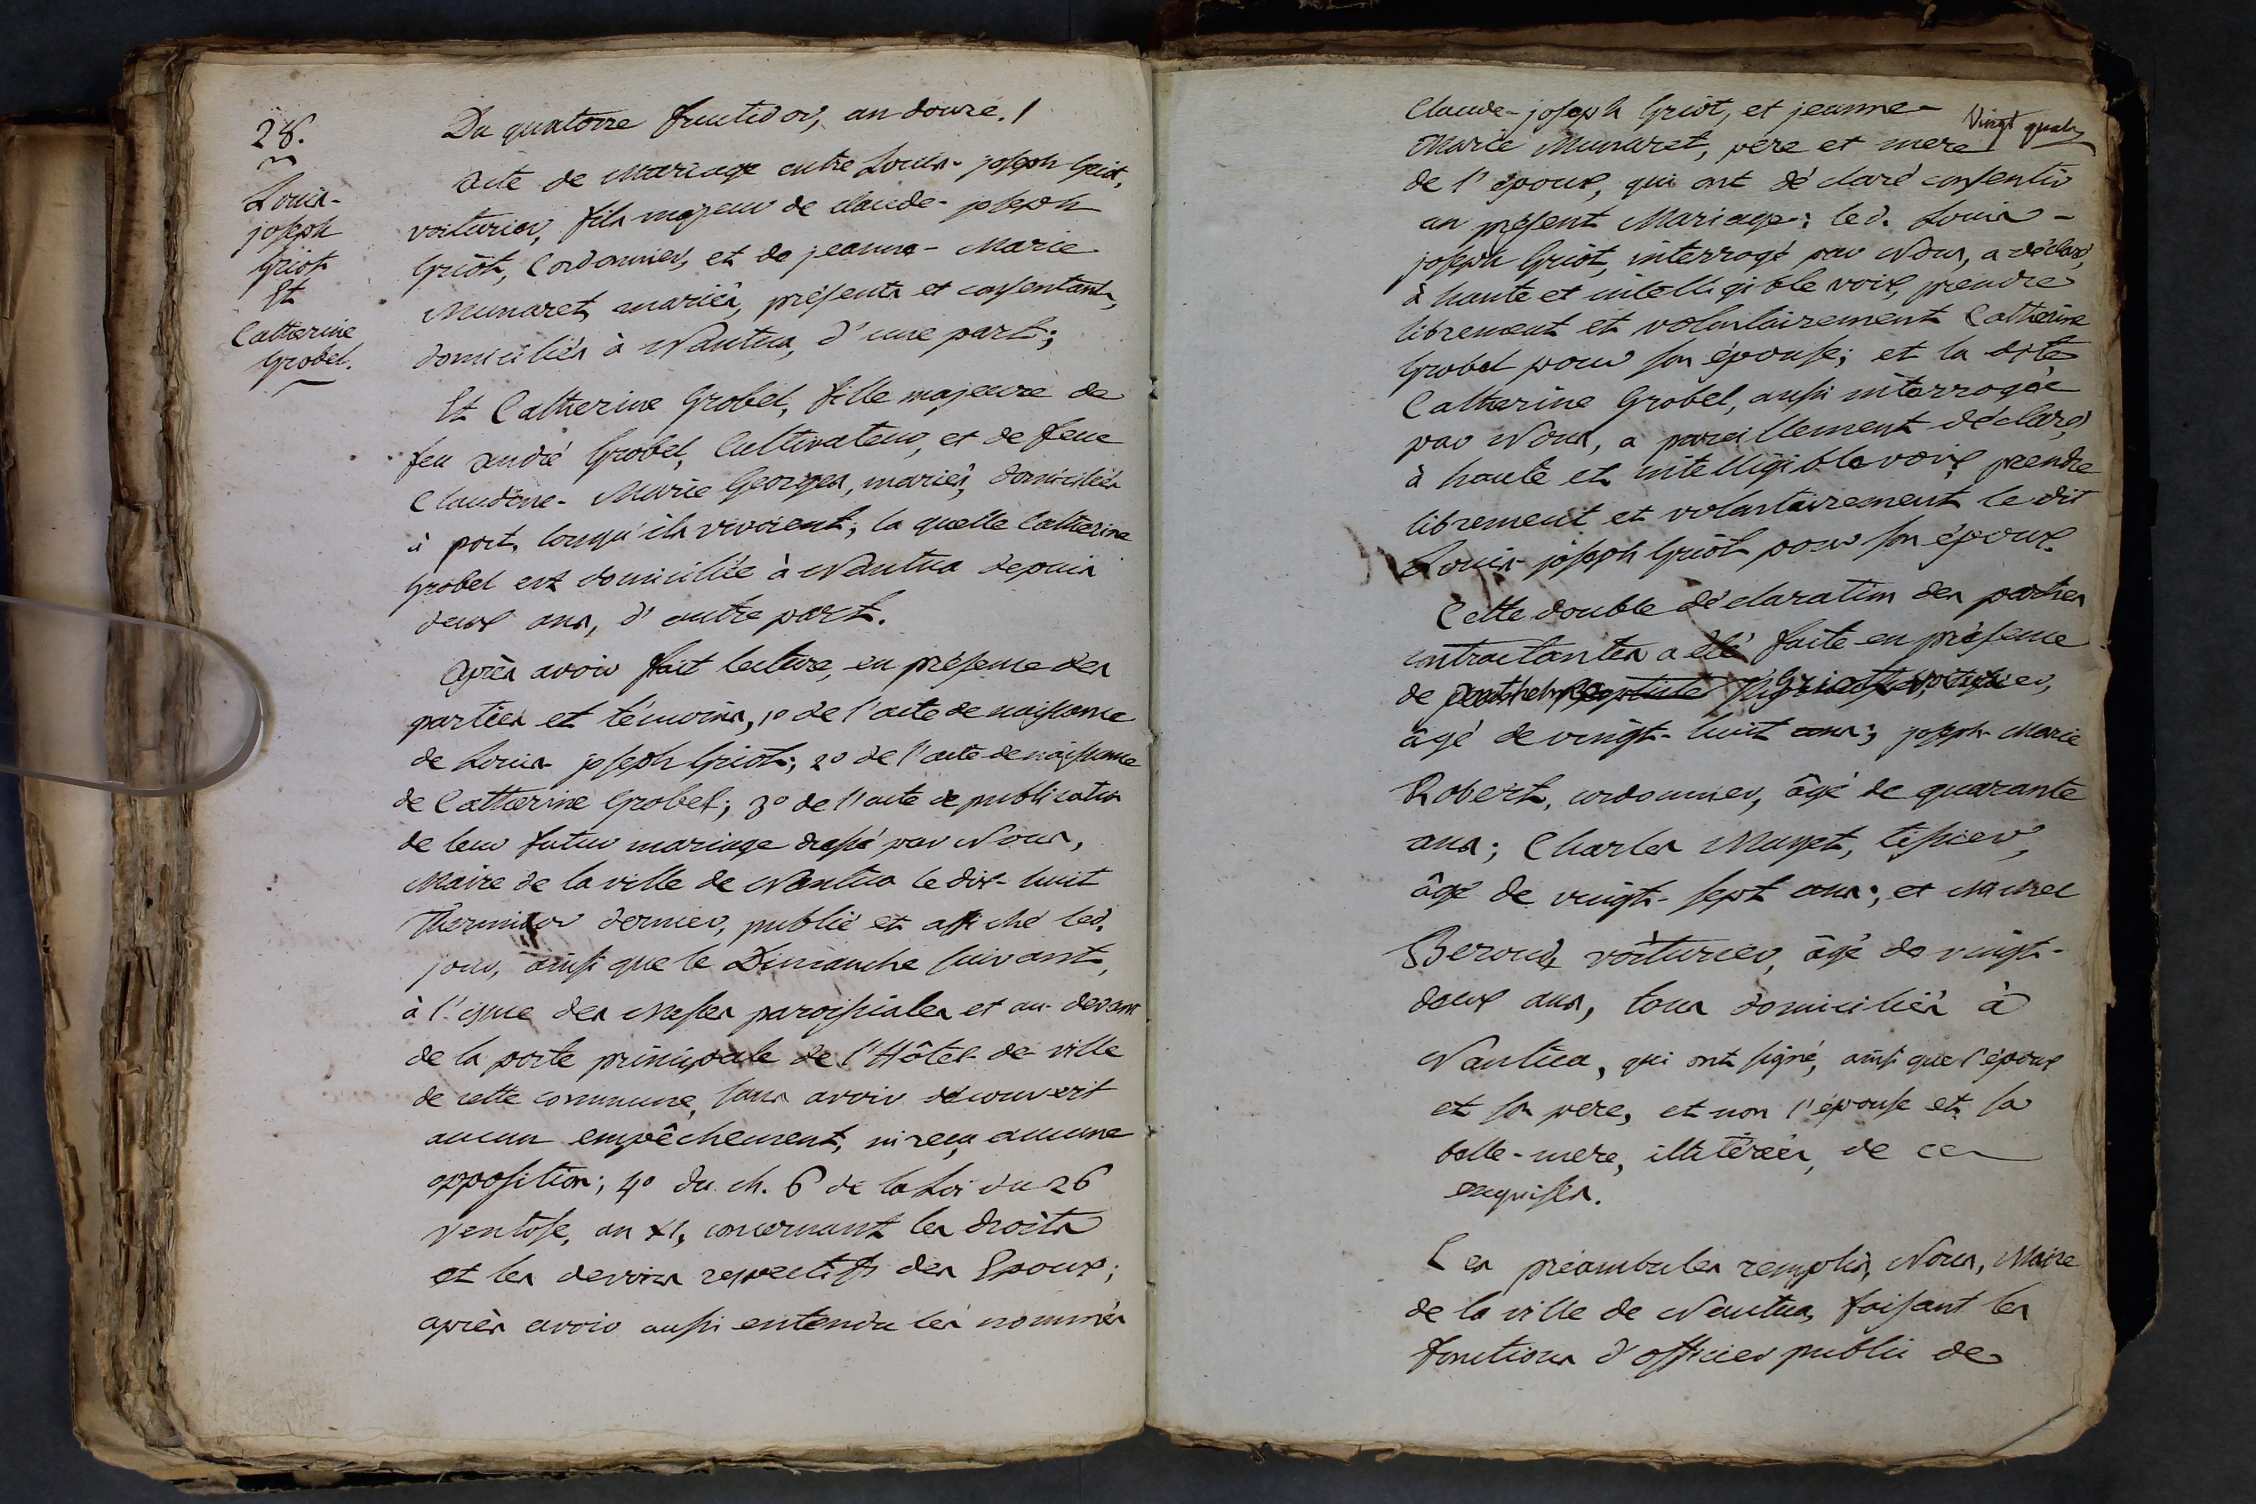 28.
Louis-
joseph
Griot
Et
Catherine
Grobel.
Du quatorze fructidor, an douze.
Acte de Mariage entre Louis-joseph Griot,
voiturier, fils majeur de claude-joseph
Griot, Cordonnier, et de jeanne-Marie
Munaret, mariés, présents et consentants,
domiciliés à Nantua, d'une part;
Et Catherine Grobel, fille majeure de
feu andré Grobel, Cultivateur, et de feue
Claudine-Marie Georges, mariés, domiciliés
à port, lorsqu'ils vivoient; la quelle Catherine
Grobel est domiciliée à Nantua depuis
deux ans, d'autre part.
Après avoir fait lecture, en présence des
parties et témoins, 1º de l'acte de naissance
de Louis joseph Griot; 2º de l'acte de naissance
de Catherine Grobel; 3º de l'acte de publication
de leur futur mariage dressé par Nous,
Maire de la ville de Nantua le dix-huit
Thermidor dernier, publié et affiché led.
jour, ainsi que le Dimanche suivant,
à l'issue des Messes paroissiales et au-devant
de la porte principale de l'Hôtel-de-ville
de cette commune, sans avoir découvert
aucun empêchement, ni reçu aucune
opposition; 4º du ch. 6 de la Loi du 26
Ventose, an XI, concernant les droits
et les devoirs respectifs des Epoux;
après avoir aussi entendu les nommés
Vingt quatre
Claude-joseph Griot, et jeanne-
Marie Munaret, père et mere
de l'époux, qui ont déclaré consentir
au présent Mariage: led. Louis-
joseph Griot, interrogé par Nous, a déclaré,
à haute et intelligible voix, prendre
librement et volontairement Catherine
Grobel pour son épouse; et la dite
Catherine Grobel, aussi interrogée
par Nous, a pareillement déclaré,
à haute et intelligible voix, prendre
librement et volontairement le dit
Louis-joseph Griot pour son époux.
Cette double déclaration des parties
contractantes a été faite en présence
de voiturier,
âgé de vingt-huit ans; joseph-Marie
Robert, cordonnier, âgé de quarante
ans; Charles Muget, tissier,
âgé de vingt-sept ans; et Michel
Beroud, voiturier, âgé de vingt-
deux ans, tous domiciliés à
Nantua, qui ont signé, ainsi que l'époux
et son pere, et non l'épouse et sa
belle-mere, illitérées, de ce
enquises.
Les préambules remplis, Nous, Maire
de la ville de Nantua, faisant les
fonctions d'officier public de